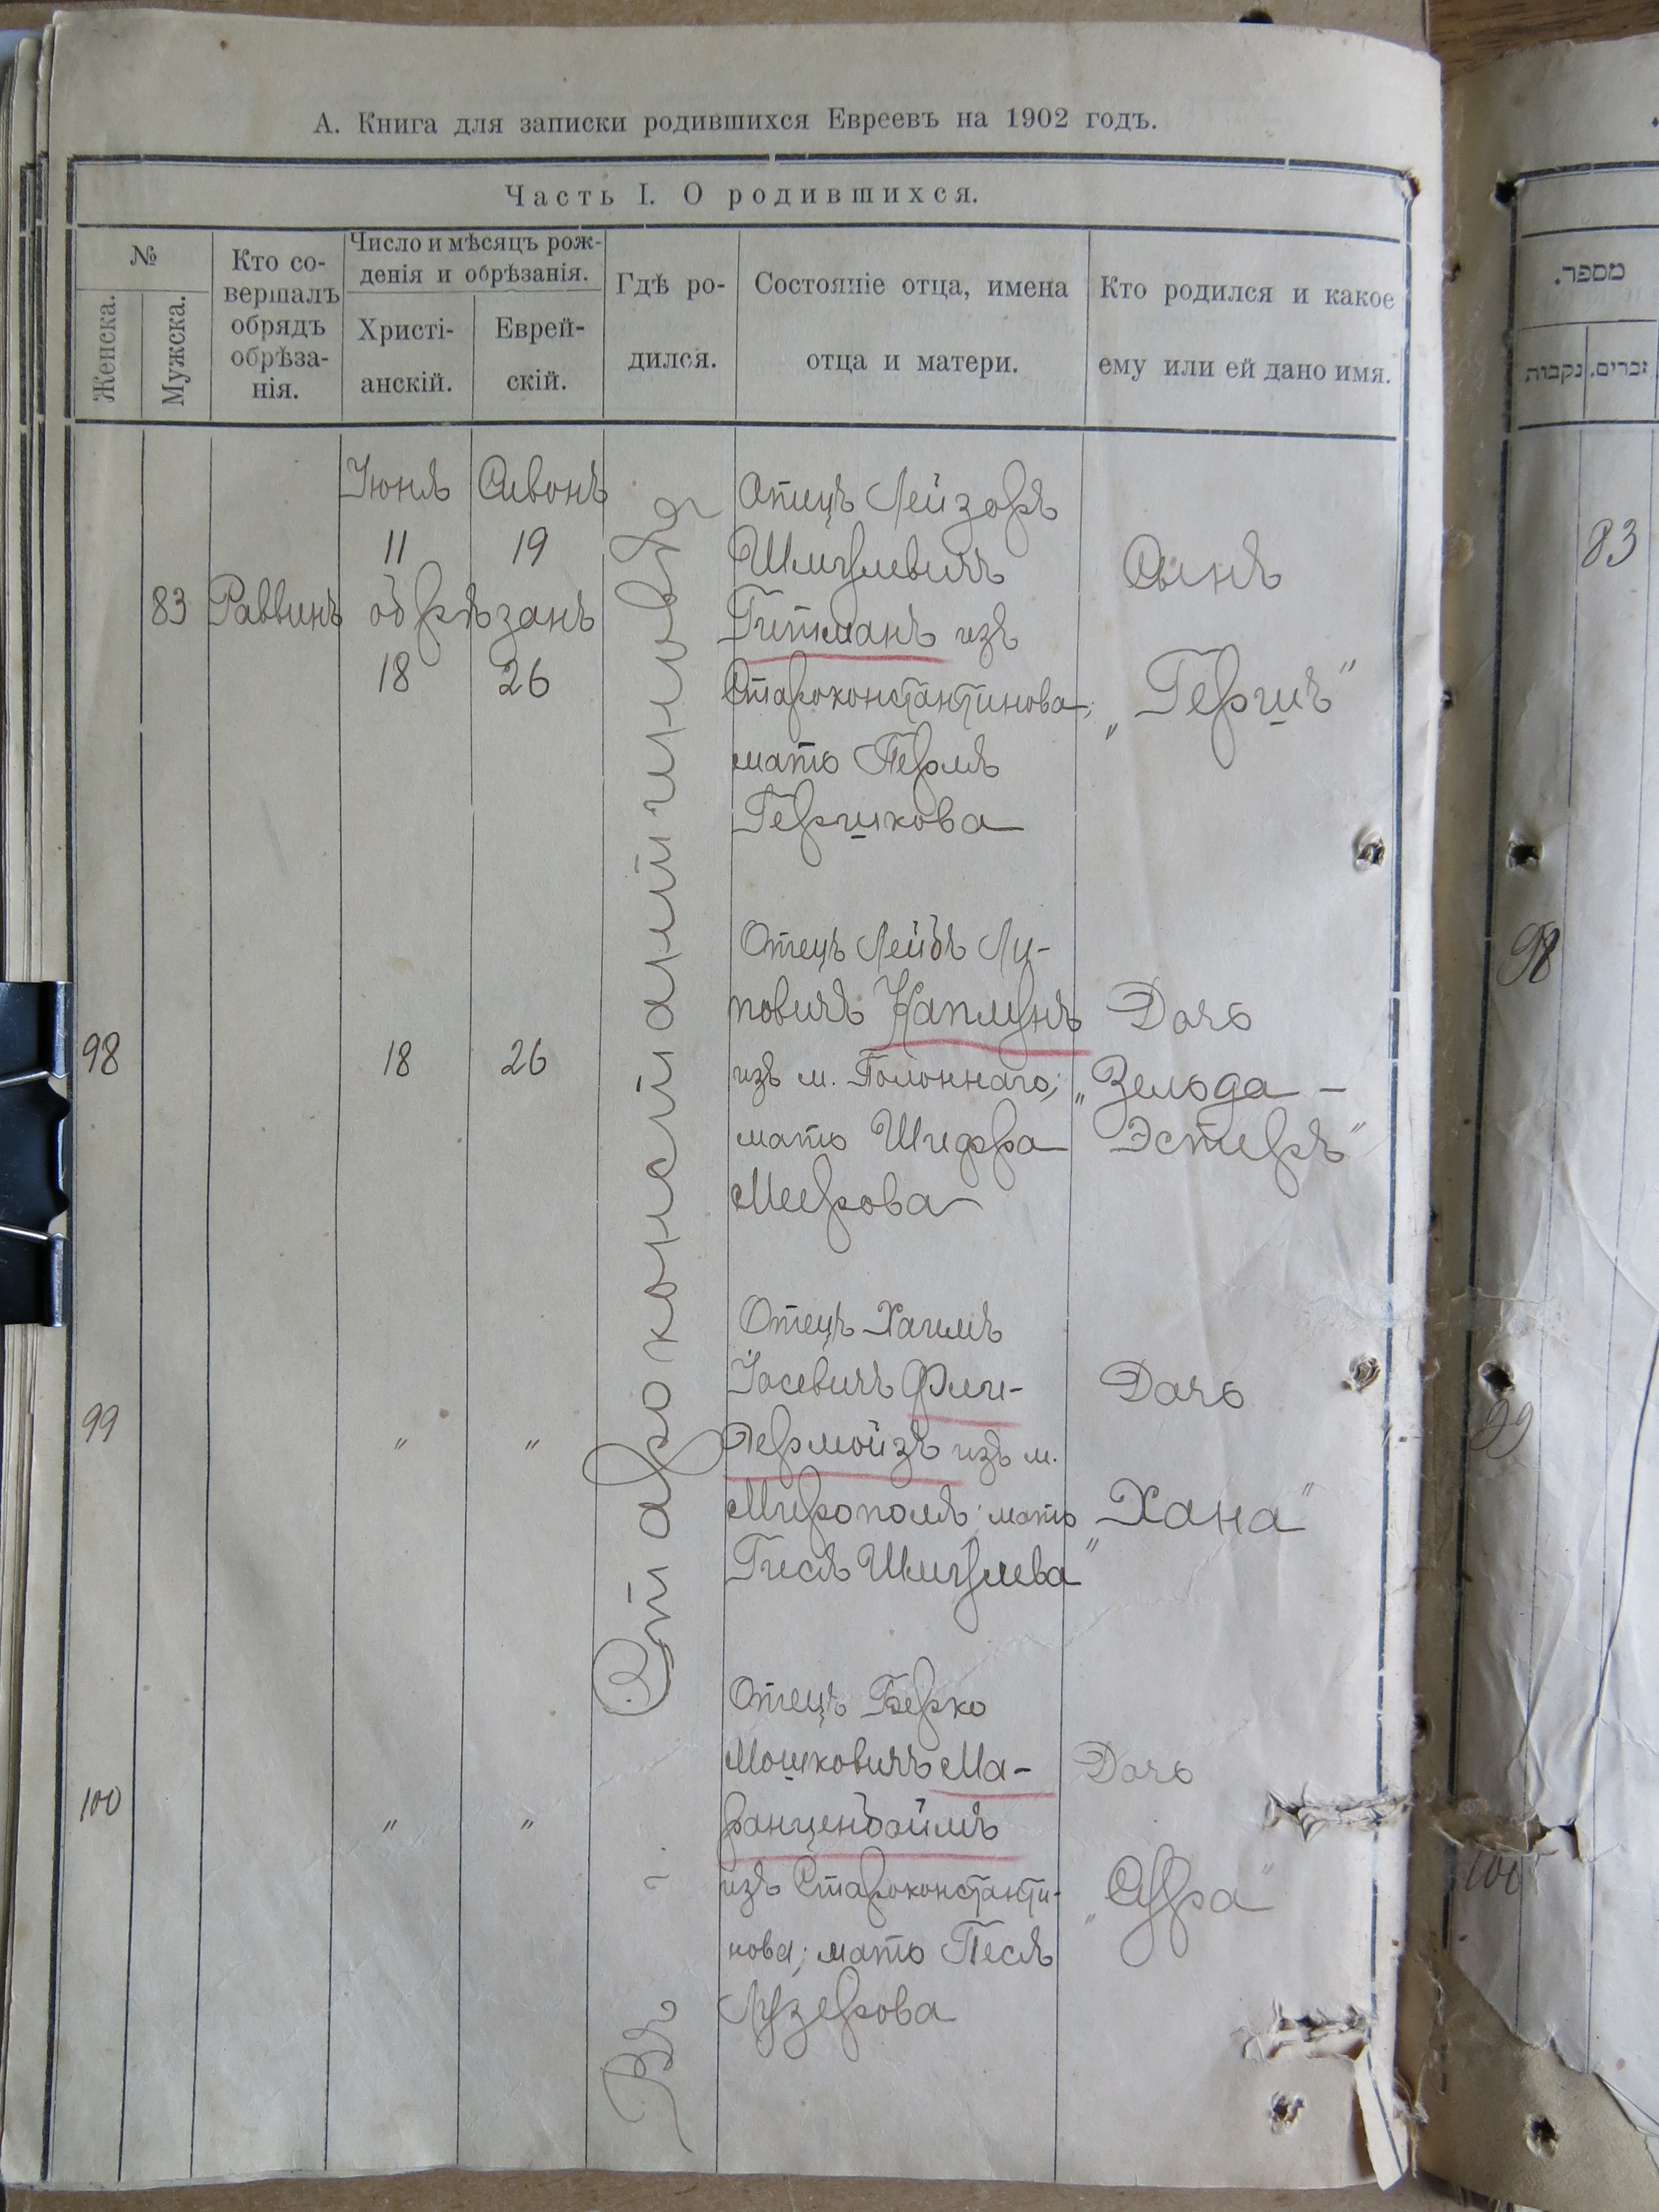 А. Книга для записки родившихся Евреевъ на 1902 годъ.
Часть I. О родившихся.
№
Женска.
Мужска.
Кто со-
вершалъ
обрядъ
обрѣза-
нія.
Число и мѣсяцъ рож-
денія и обрѣзанія.
Христі-
анскій.
Еврей-
скій.
Гдѣ ро-
дился.
Состояніе отца, имена
отца и матери.
Кто родился и какое
ему или ей дано имя.
Въ г. Староконстантиновѣ
83
Раввинъ
Іюня Сивонъ
11 19
обрѣзанъ
18 26
Отецъ Лейзоръ
Шмулевичъ
Гитманъ изъ
Староконстантинова;
мать Перля
Гершкова
Сынъ
„Гершъ"
98
18 26
Отецъ Лейбъ Ли-
повичъ Каплунъ
изъ м. Полоннаго;
мать Шифра
Меерова
Дочь
„Зельда -
Эстеръ"
99
" "
Отецъ Хаимъ
Іосевичъ Фли-
дермойзъ изъ м.
Мирополя мать
Гися Шмулева
Дочь
„Хана"
100
" "
Отецъ Берко
Мошковичъ Ма-
ранценбоймъ
изъ Староконстанти-
нова; мать Песя
Лузерова
Дочь
„Сура"
מספר.
זכרים.
נקבות
83
98
99
100